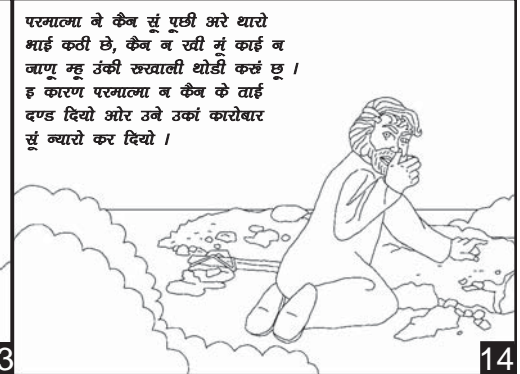 परमात्मा ने कैन सूं पूछी अरे थारो
भाई कठी छे, कैन न खी मूं काई न
जाणू म्हू उंकी रुखाली थोडी करूं छू ।
इ कारण परमात्मा न कैन के ताई
दण्ड दियो ओर उने उकां कारोबार
सूं न्यारो कर दियो ।
3
14